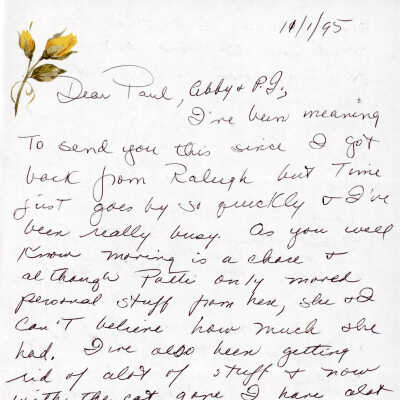 11/1/95
Dear Paul, Abby & P.J.,
I've been meaning
To send you this since I got
back from Raleigh but Time
just goes by so quickly & I've
been really busy. As you well
Know moving is a chore &
although Patti only moved
personal stuff from here, she & I
can't believe how much she
had. I've also been getting
rid of alot of stuff & now
with the cat gone I have alot